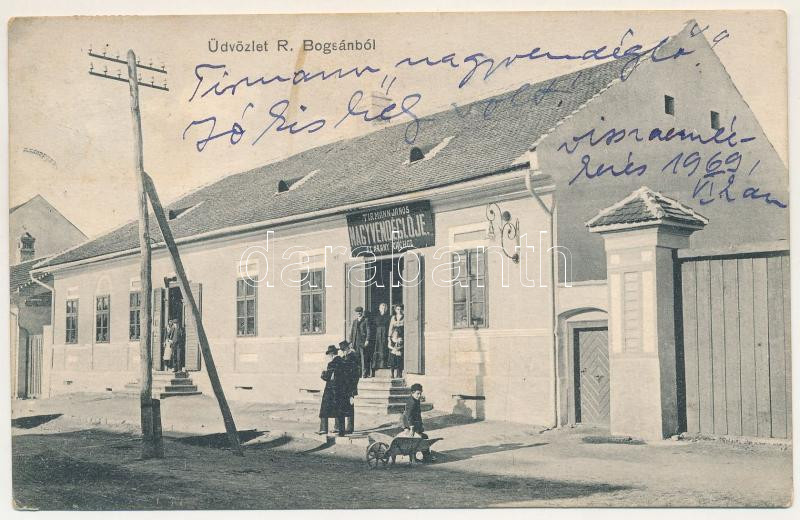 Üdvözlet R. Bogsánból
Tirmann „nagyvendéglő”
Jó kis hely volt!
visszaemlé-
kezés 1969
VI.
TIRMANN JÁNOS
NAGYVENDÉGLŐJE
darabanth